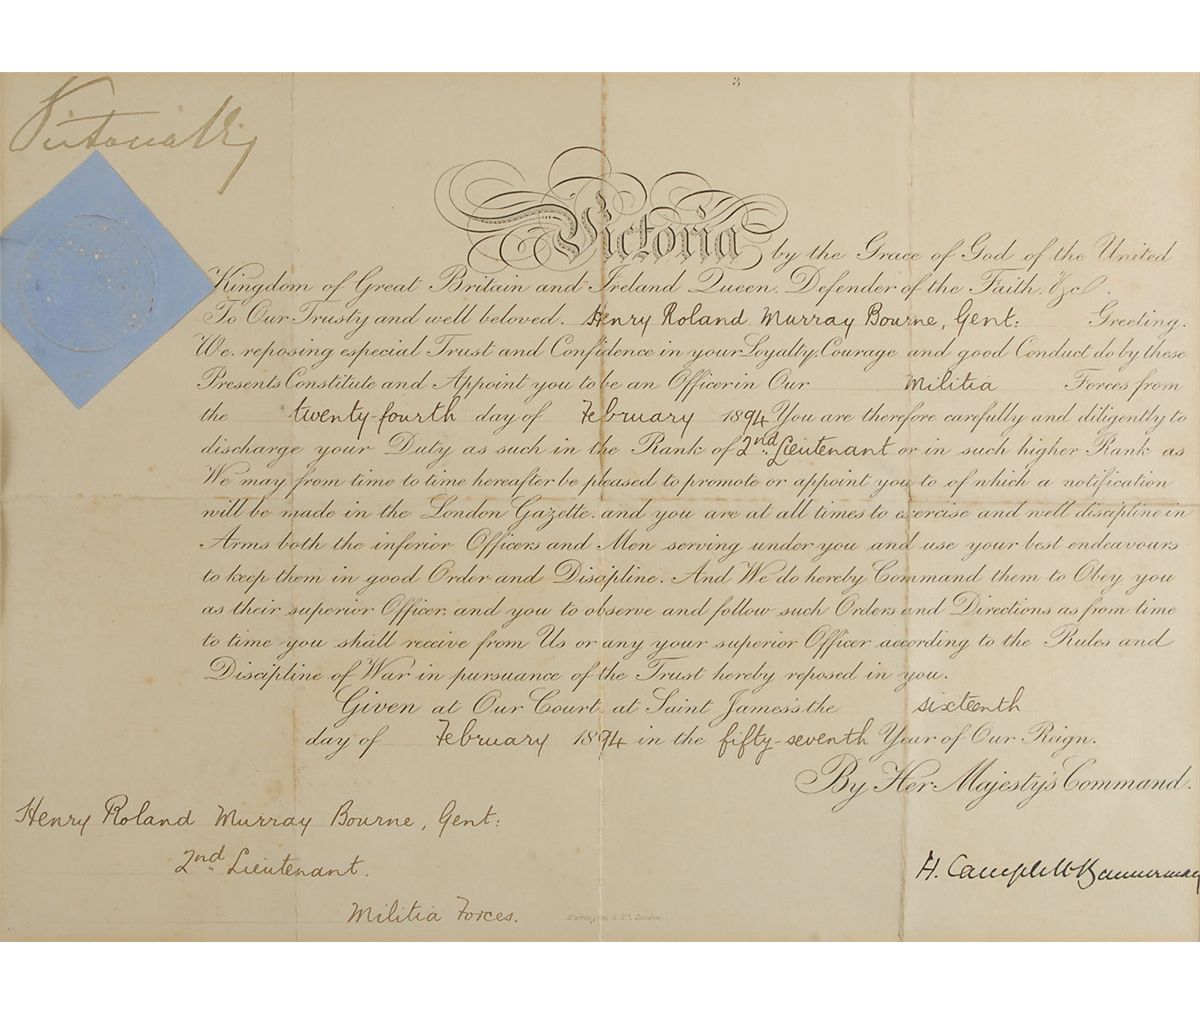 3
Victoria R I
Victoria by the Grace of God of the United
Kingdom of Great Britain and Ireland Queen, Defender of the Faith, &c.
To Our Trusty and well beloved. Henry Roland Murray Bourne, Gent: Greeting.
We, reposing especial Trust and Confidence in your Loyalty, Courage and good Conduct do by these
Presents Constitute and Appoint you to be an Officer in Our Militia Forces from
the twenty-fourth day of February 1894 You are therefore carefully and diligently to
discharge your Duty as such in the Rank of 2nd Lieutenant or in such higher Rank as
We may from time to time hereafter be pleased to promote or appoint you to of which a notification
will be made in the London Gazette, and you are at all times to exercise and well discipline in
Arms both the inferior Officers and Men serving under you and use your best endeavours
to keep them in good Order and Discipline. And We do hereby Command them to Obey you
as their superior Officer, and you to observe and follow such Orders and Directions as from time
to time you shall receive from Us or any your superior Officer according to the Rules and
Discipline of War in pursuance of the Trust hereby reposed in you.
Given at Our Court, at Saint James's the sixteenth
day of February 1894 in the fifty-seventh Year of Our Reign.
By Her Majesty's Command.
Henry Roland Murray Bourne, Gent:
2nd Lieutenant.
Militia Forces.
H. Campbell-Bannerman